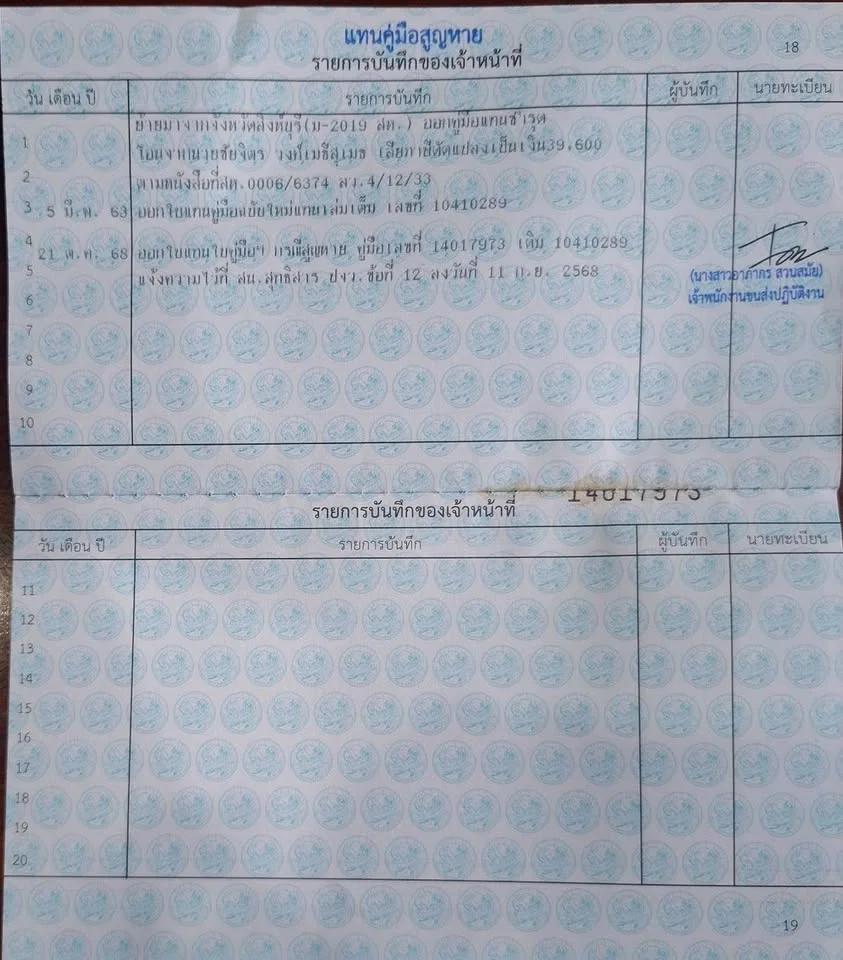 แทนคู่มือสูญหาย
รายการบันทึกของเจ้าหน้าที่
18
วัน เดือน ปี รายการบันทึก ผู้บันทึก นายทะเบียน
1 ย้ายมาจากจังหวัดสิงห์บุรี(ม-2019 สห.) ออกคู่มือแทนชำรุด
โอนจากนายชัยจิตร วงศ์เมธีสุเมธ เสียภาษีดัดแปลงเป็นเงิน39,600
2 ตามหนังสือที่สห.0006/6374 ลว.4/12/33
3 5 มี.ค. 63 ออกใบแทนคู่มือฉบับใหม่แทนเล่มเต็ม เลขที่ 10410289
4 21 ต.ค. 68 ออกใบแทนใบคู่มือฯ กรณีสูญหาย คู่มือเลขที่ 14017973 เดิม 10410289
5 แจ้งความไว้ที่ สน.สุทธิสาร ปจว.ข้อที่ 12 ลงวันที่ 11 ก.ย. 2568
(นางสาวอาภากร สวนสมัย)
เจ้าพนักงานขนส่งปฏิบัติงาน
6
7
8
9
10
14017973
รายการบันทึกของเจ้าหน้าที่
วัน เดือน ปี รายการบันทึก ผู้บันทึก นายทะเบียน
11
12
13
14
15
16
17
18
19
20
19